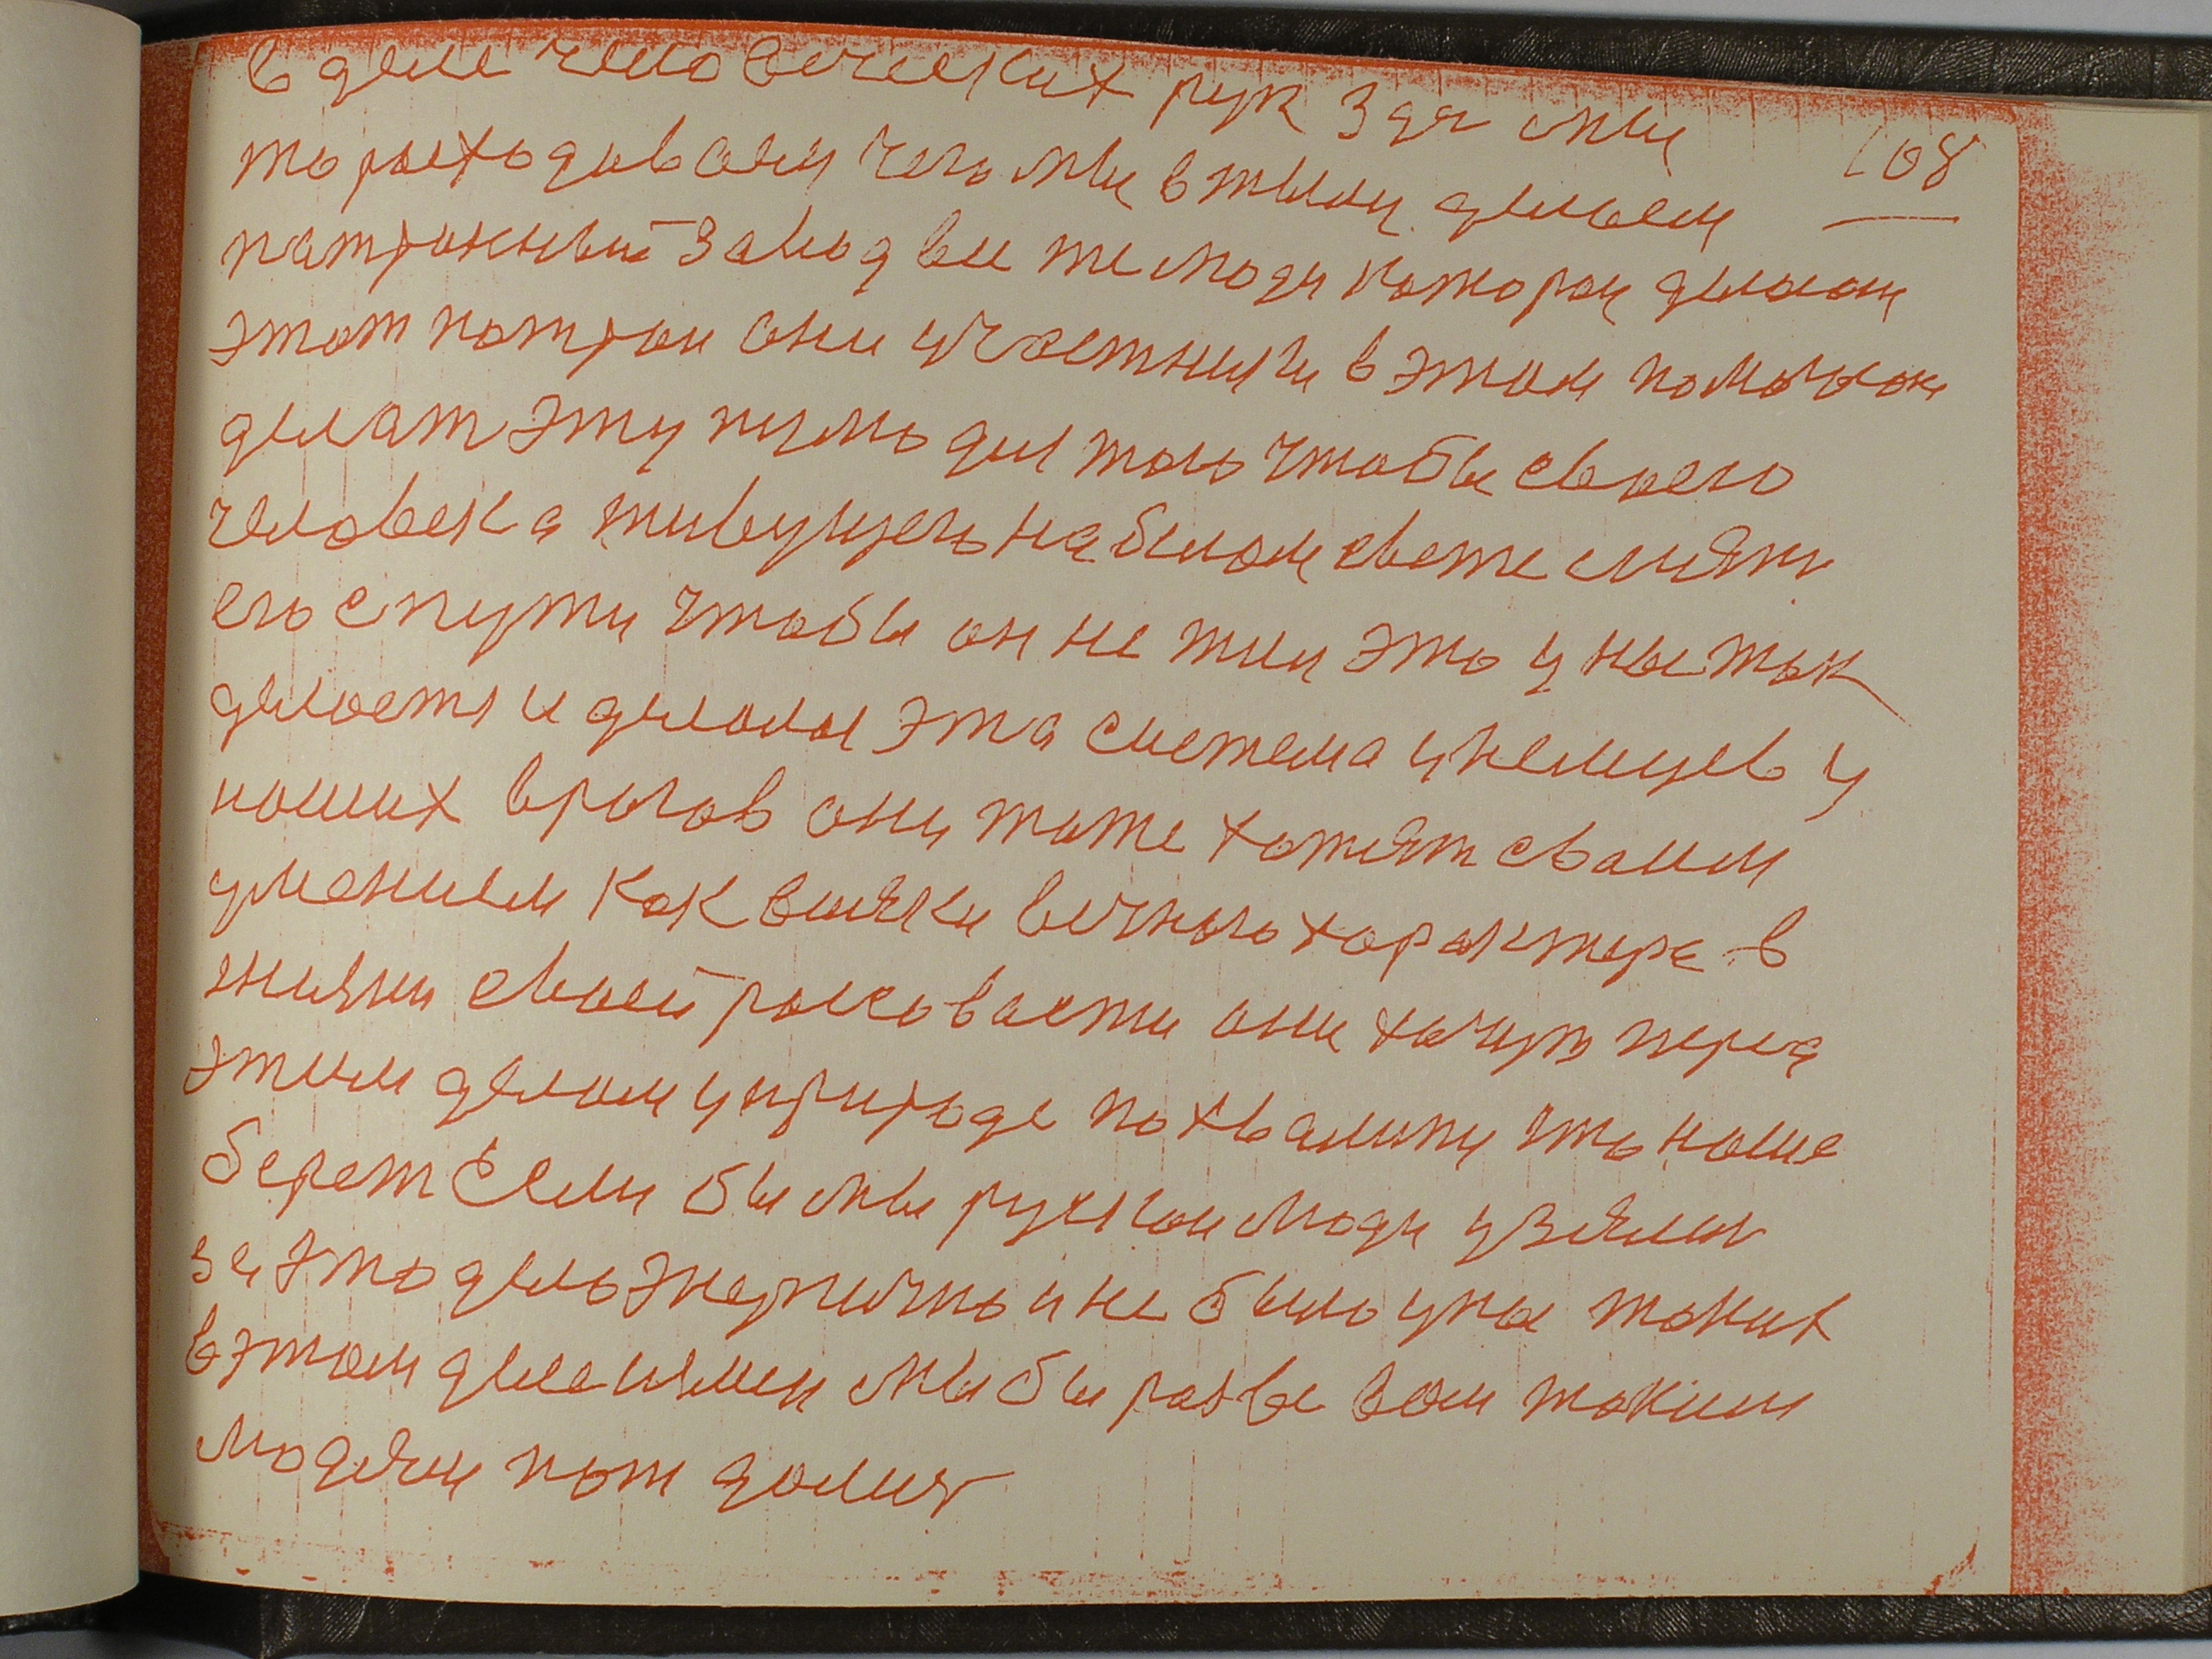 в деле человеческих рук Здя мы
108
то расходываем чего мы в тылу делаем
патронный завод все те люди которои делаюи
этот патрон они участники в этом помогаюи
делат эту пулю для того чтобы своего
человека живущего на белом свете снять
его с пути чтобы он не жил это у нас так
делаетя и делалоя эта система у немцев у
наших врагов они тоже хотят своим
умением как всяки вечного характера в
жизни своей рассовасти они хочут перед
этим делом у природе похвалити что наше
берет Если бы мы рускои люди узялис
за это дело энергично и не было у нас таких
в этом деле измен мы бы разве вои таким
людям пот дались